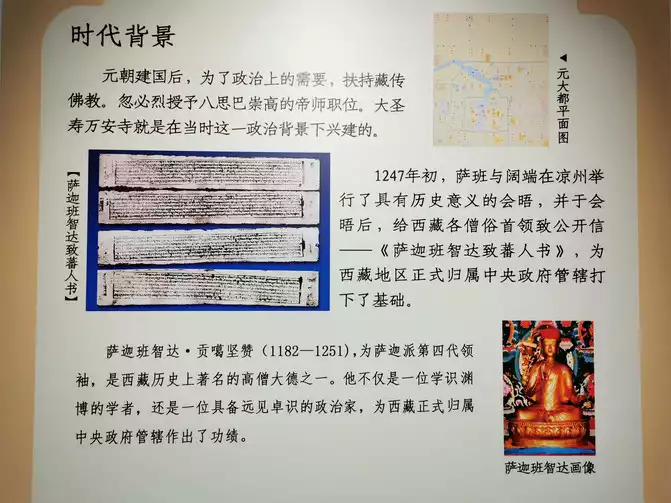 时代背景
元朝建国后，为了政治上的需要，扶持藏传
佛教。忽必烈授予八思巴崇高的帝师职位。大圣
寿万安寺就是在当时这一政治背景下兴建的。
◀元大都平面图
【萨迦班智达致蕃人书】
1247年初，萨班与阔端在凉州举
行了具有历史意义的会晤，并于会
晤后，给西藏各僧俗首领致公开信
——《萨迦班智达致蕃人书》，为
西藏地区正式归属中央政府管辖打
下了基础。
萨迦班智达·贡噶坚赞（1182—1251），为萨迦派第四代领
袖，是西藏历史上著名的高僧大德之一。他不仅是一位学识渊
博的学者，还是一位具备远见卓识的政治家，为西藏正式归属
中央政府管辖作出了功绩。
萨迦班智达画像